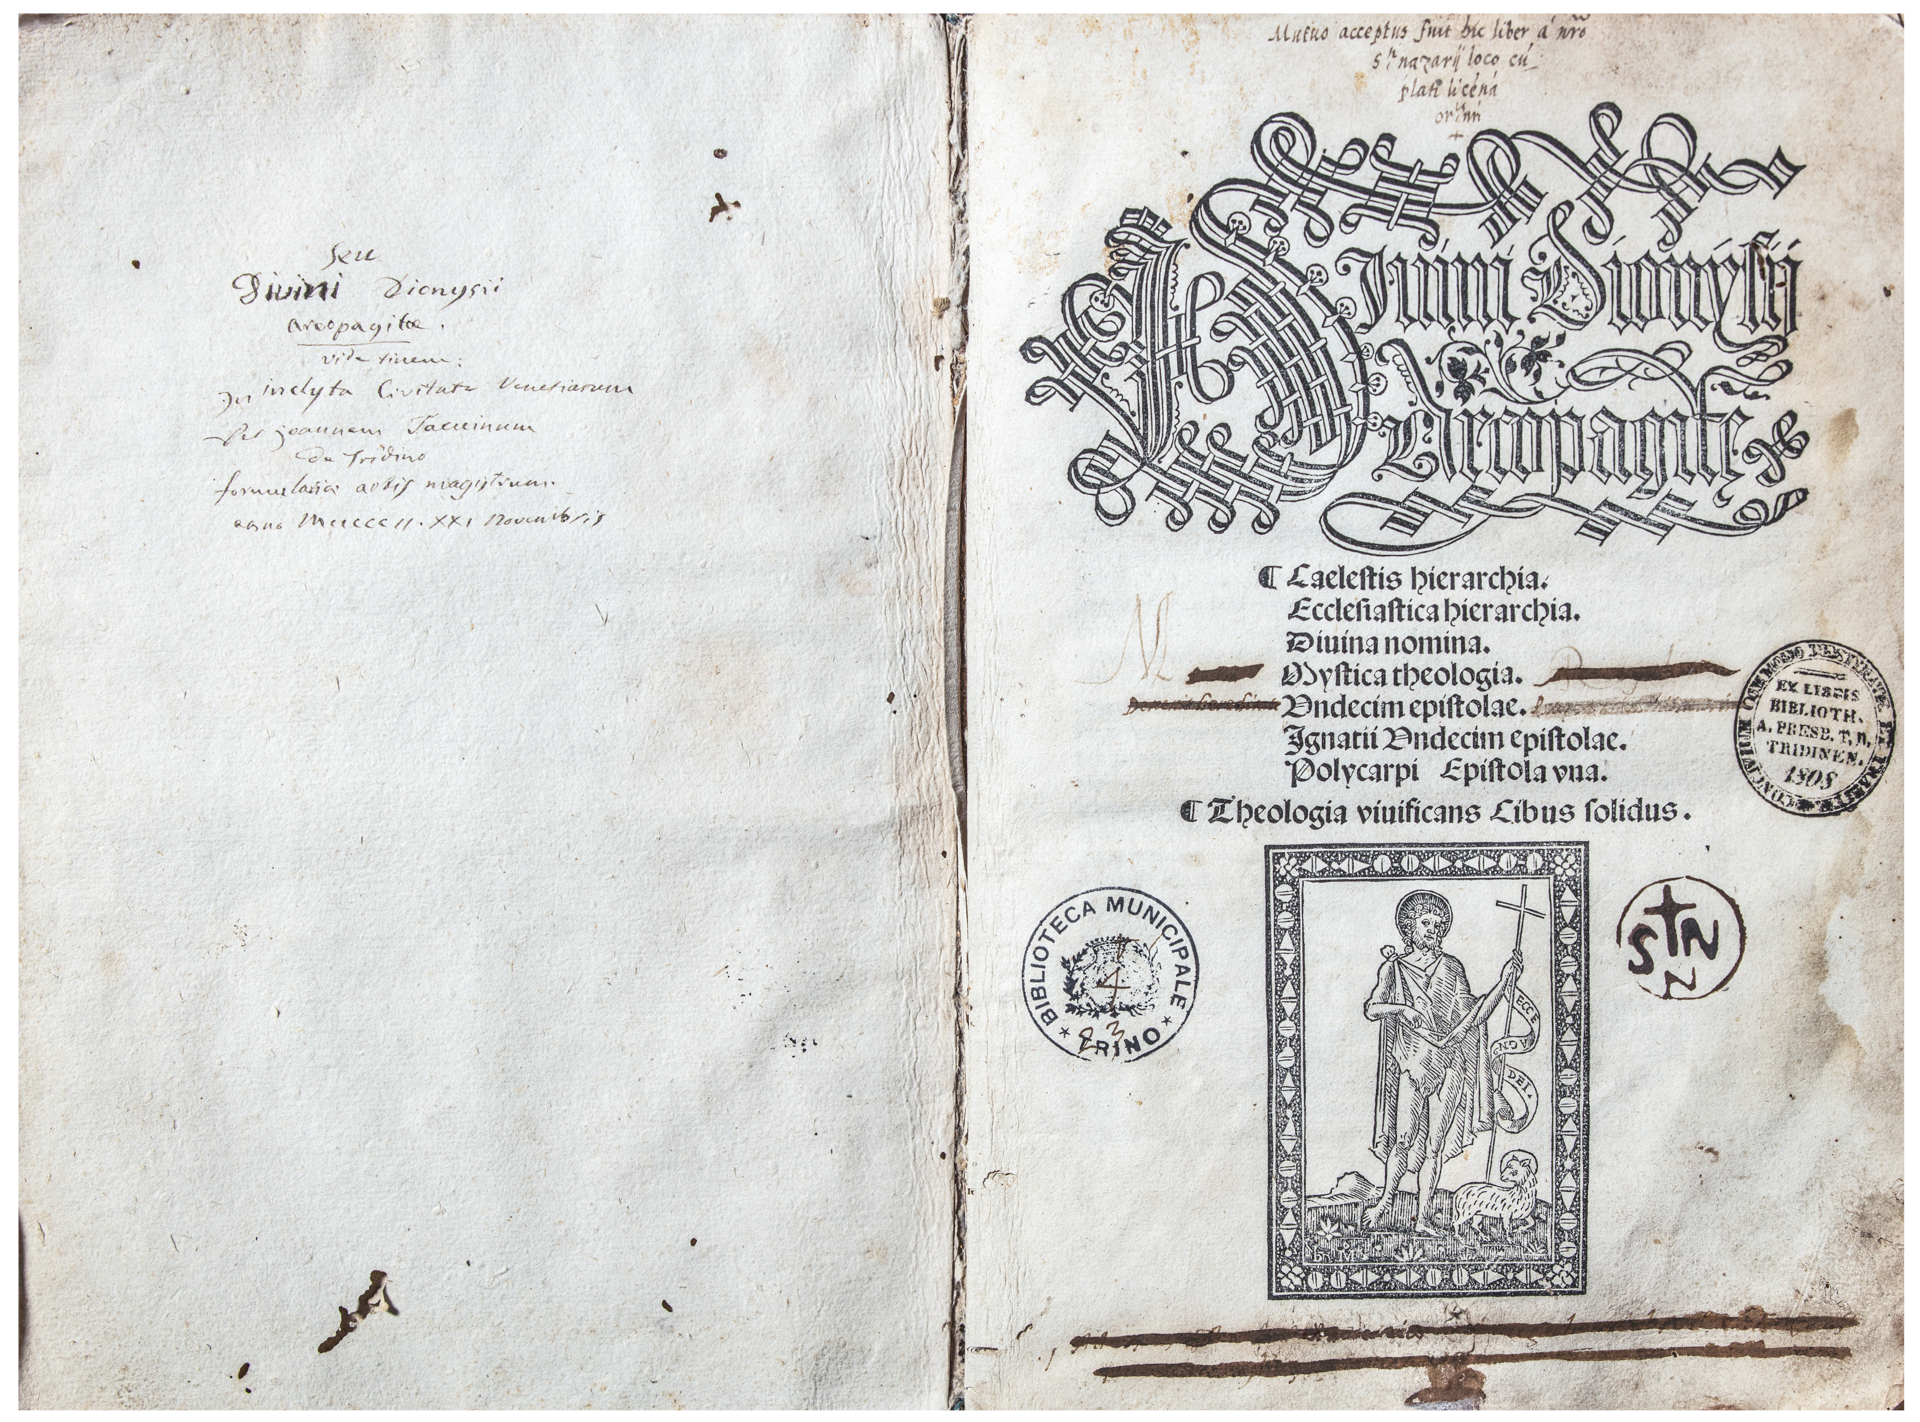 seu
Divini Dionysii
areopagitæ.
vide finem:
In inclyta Civitate Venetiarum
Per Joannem Tacuinum
de Tridino
formulariæ artis magistrum.
anno MCCCCCII. XXI Novembris
Mutuo acceptus fuit hic liber á nro
nazarij loco cú
plati licéná
Diuini Dionysij
Areopagitę
¶ Caelestis hierarchia.
Ecclesiastica hierarchia.
Diuina nomina.
Mystica theologia.
Vndecim epistolae.
Ignatii Vndecim epistolae.
Polycarpi Epistola vna.
¶ Theologia viuificans Cibus solidus.
EX LIBRIS
BIBLIOTH.
A. PRESB. T. D.
TRIDINEN.
1808
BIBLIOTECA MUNICIPALE
TRINO
4
23
ECCE
AGN
DEI
S N
N